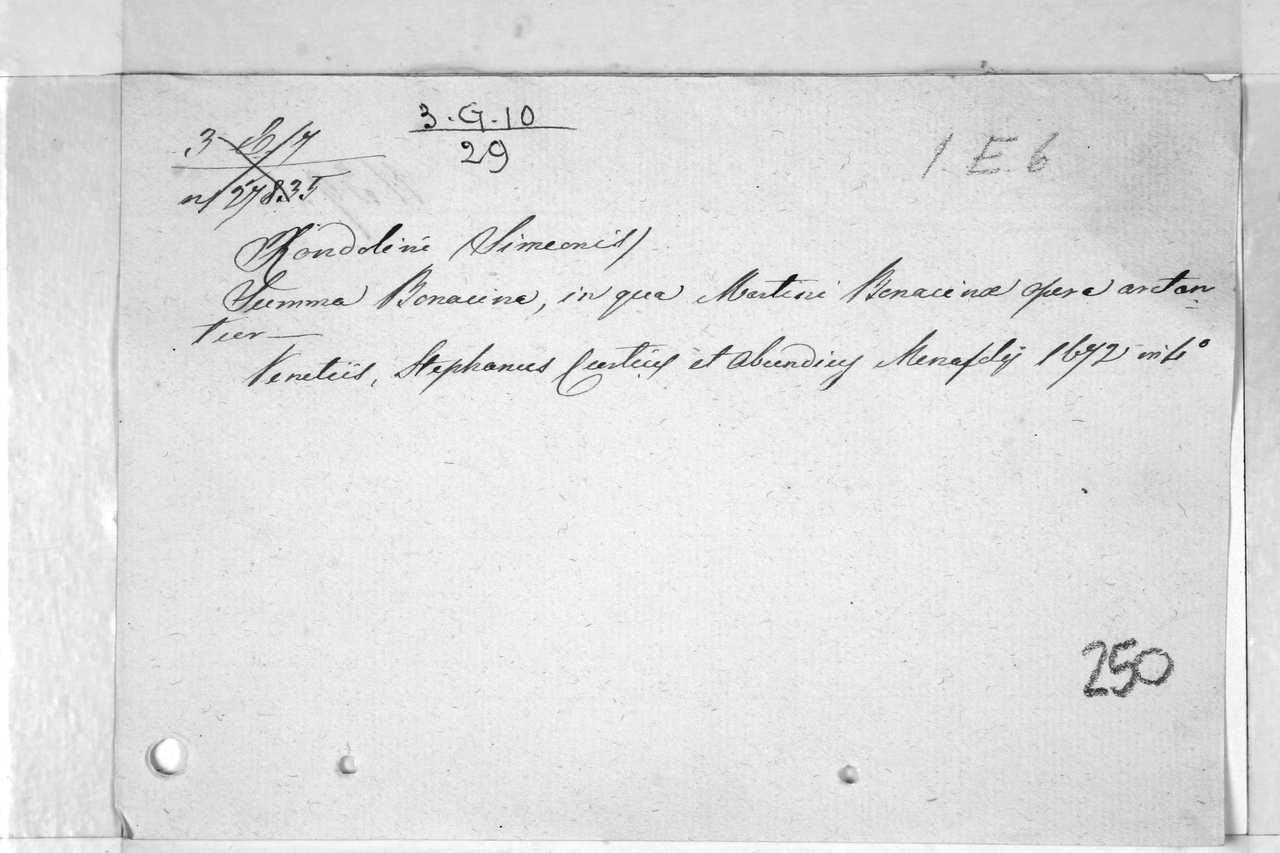 3-G-10
29
1 E 6
n/ 27835
Rondolini (Simeonis)
Summa Bonacina, in qua Martini Bonacinæ opera arctan-
tur
Venetiis, Stephanus Curtius et Abundius Menafolÿ 1672 in 4°
250